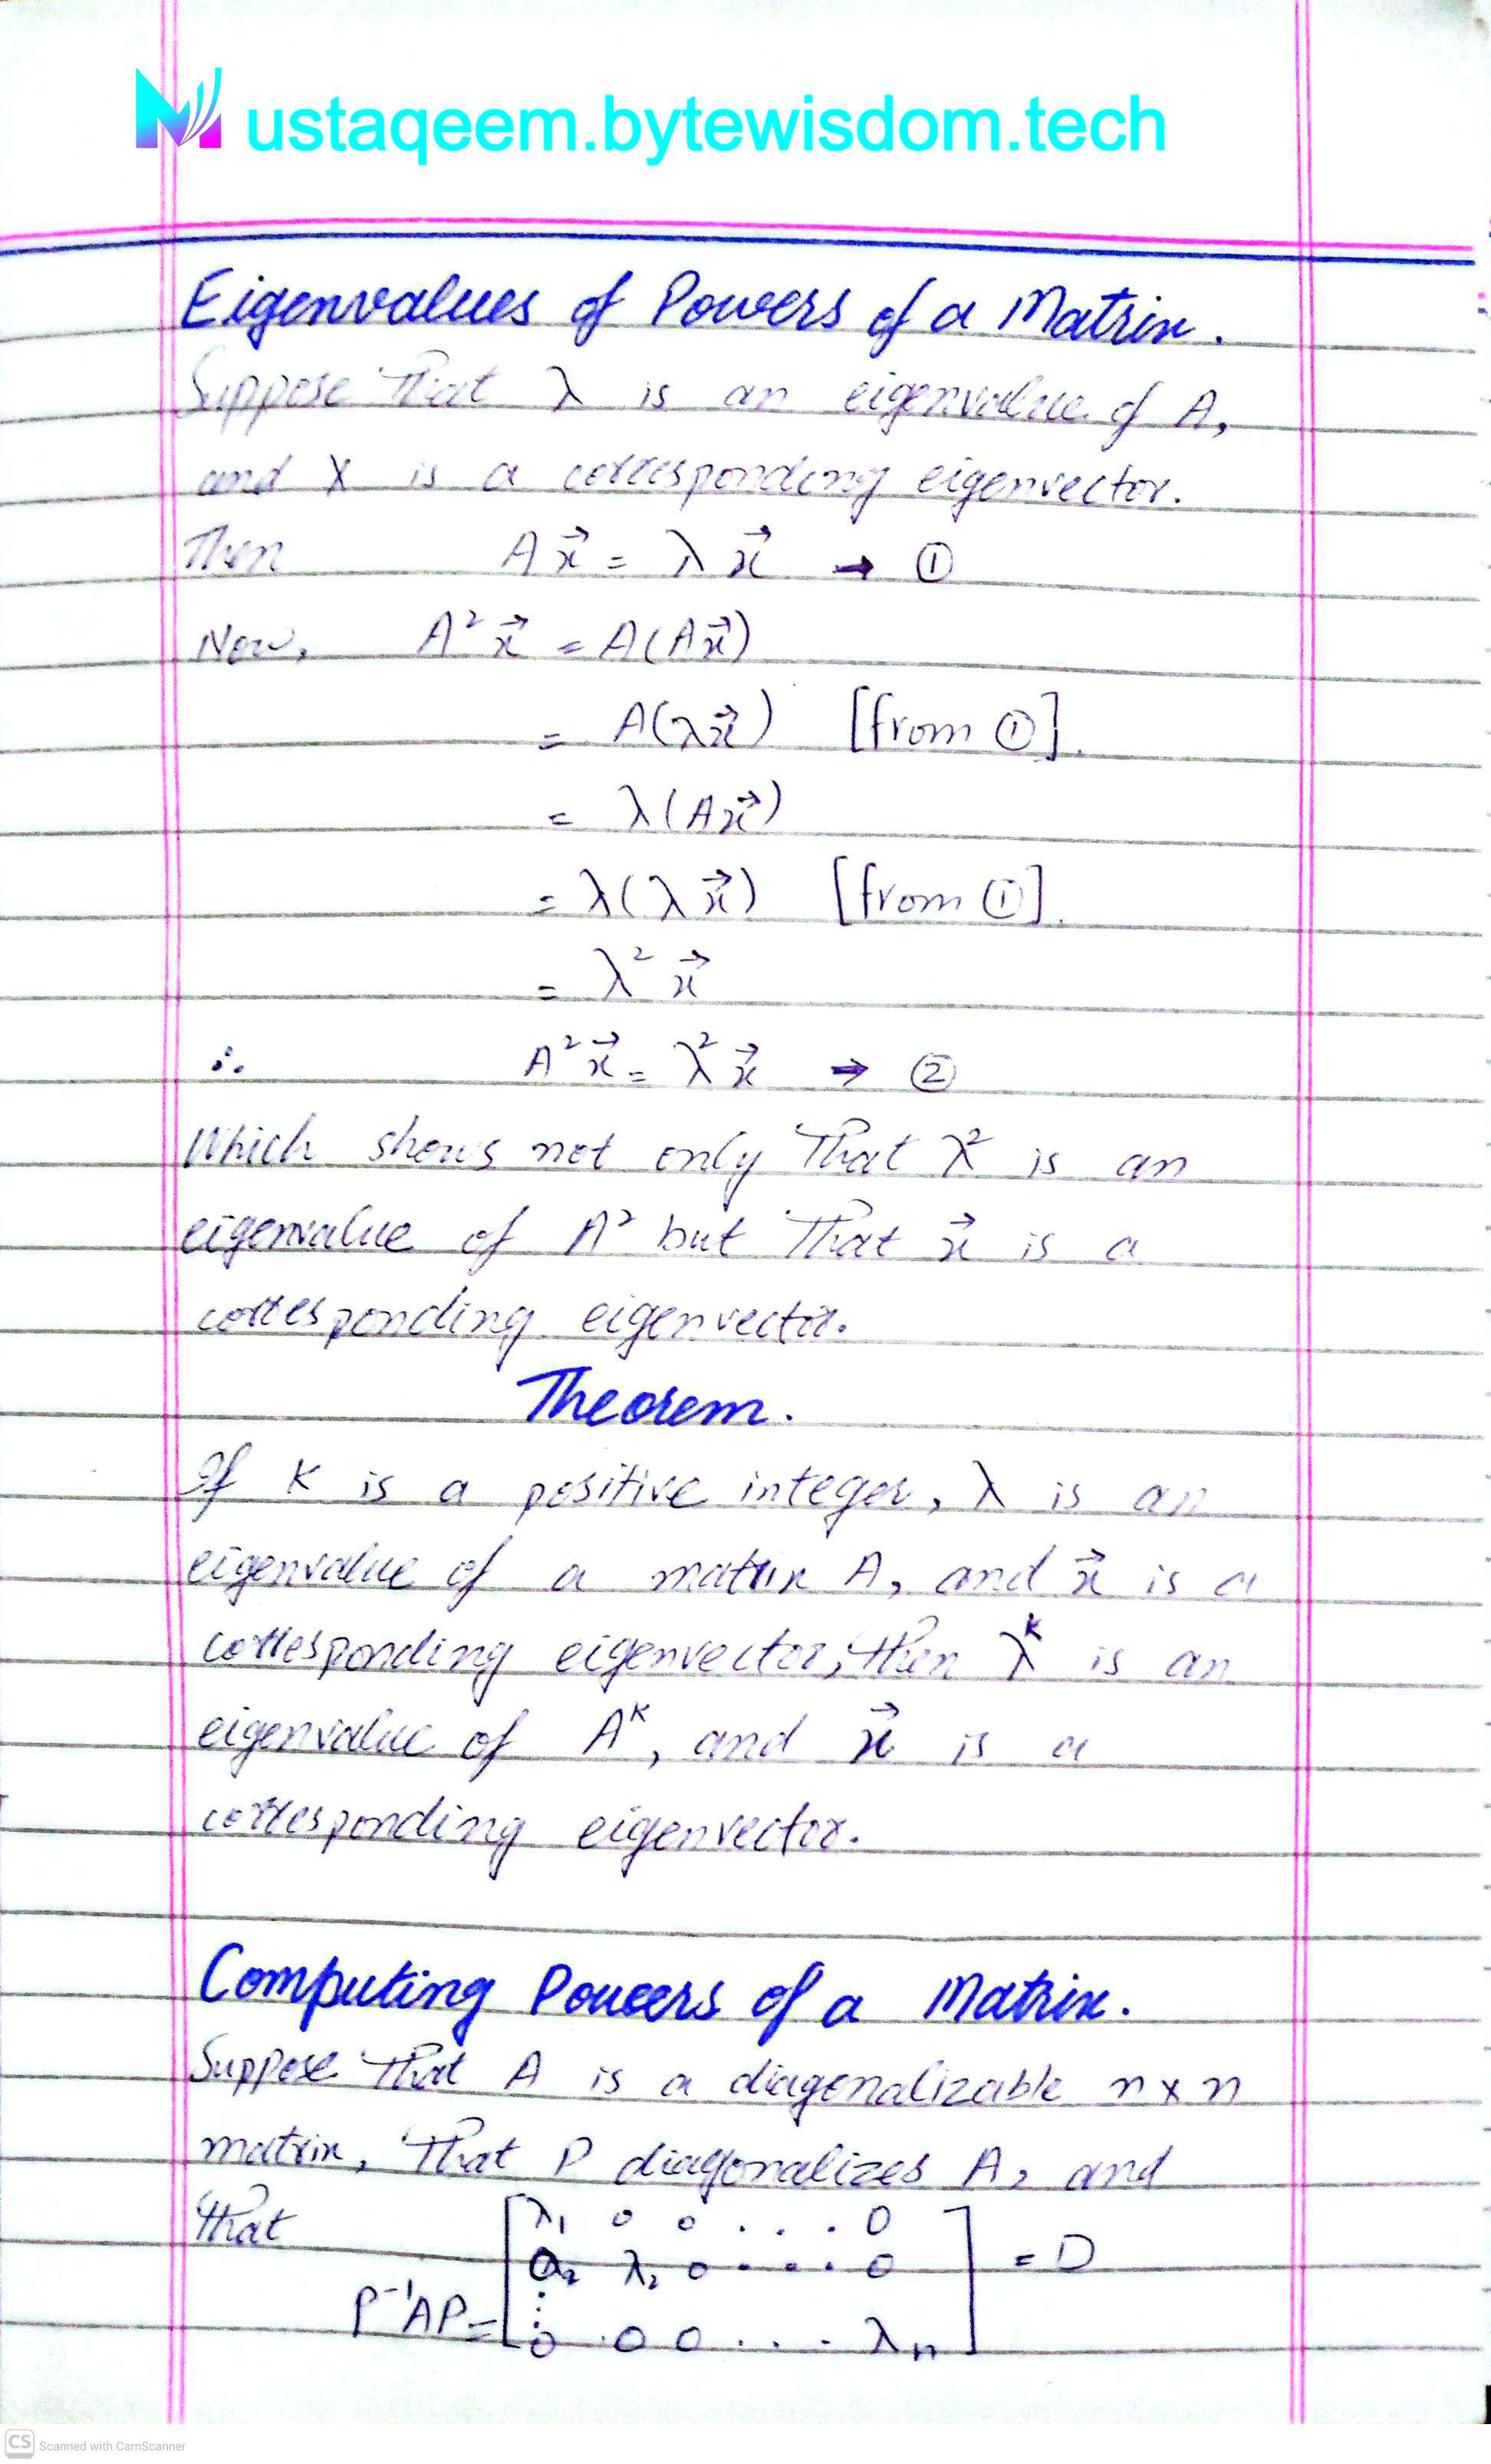 Mustaqeem.bytewisdom.tech
Eigenvalues of Powers of a Matrix.
Suppose that λ is an eigenvalue of A,
and x is a corresponding eigenvector.
Then A x⃗ = λ x⃗ → ①
Now, A² x⃗ = A(A x⃗)
= A(λ x⃗) [from ①].
= λ(A x⃗)
= λ(λ x⃗) [from ①].
= λ² x⃗
∴ A² x⃗ = λ² x⃗ → ②
Which shows not only that λ² is an
eigenvalue of A² but that x⃗ is a
corresponding eigenvector.
Theorem.
If K is a positive integer, λ is an
eigenvalue of a matrix A, and x⃗ is a
corresponding eigenvector, then λᴷ is an
eigenvalue of Aᴷ, and x⃗ is a
corresponding eigenvector.
Computing Powers of a Matrix.
Suppose that A is a diagonalizable n x n
matrix, that P diagonalizes A, and
that
[λ₁ 0 0 . . . 0
0₂ λ₂ 0 . . . 0
⋮
0 . 0 0 . . . λₙ]
P⁻¹AP = = D
CS Scanned with CamScanner